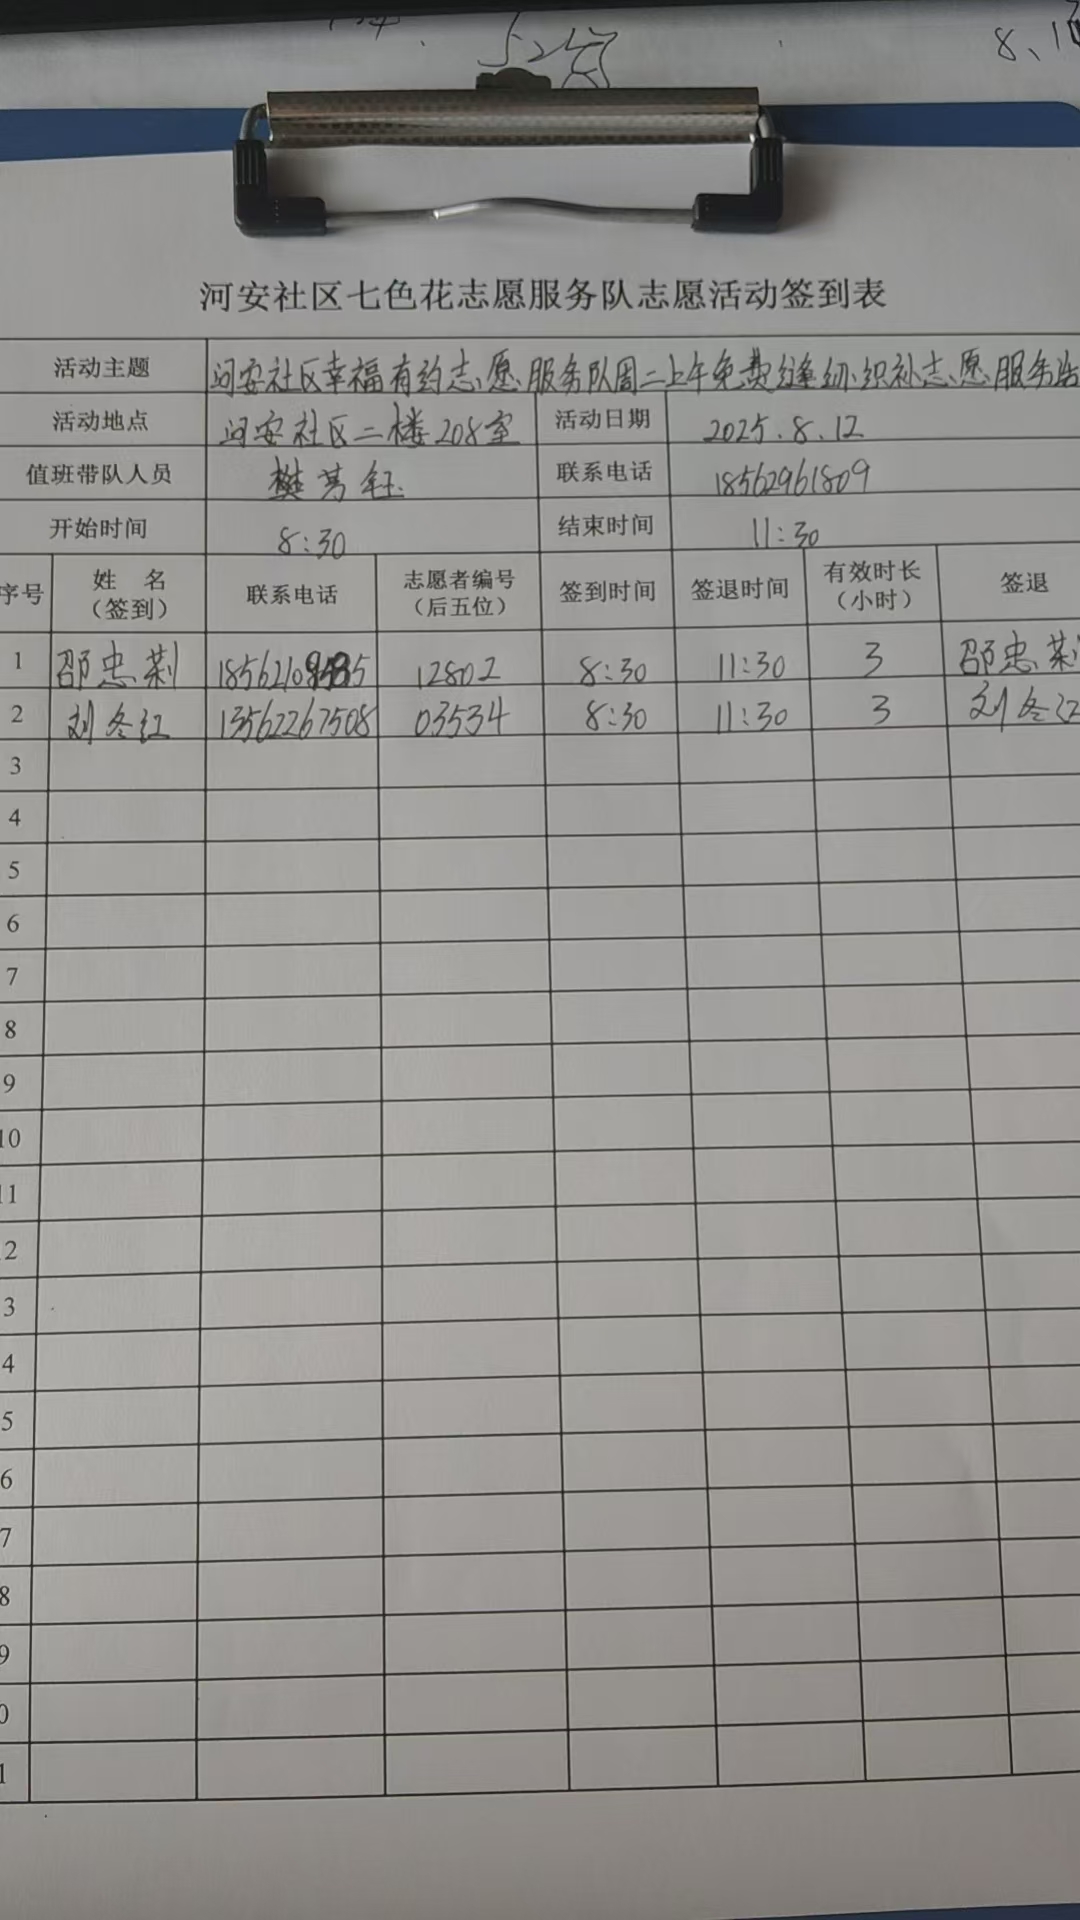 52
8.1
河安社区七色花志愿服务队志愿活动签到表
活动主题 河安社区幸福有约志愿服务队周二上午免费缝纫织补志愿服务活
活动地点 河安社区二楼208室 活动日期 2025.8.12
值班带队人员 樊芳钰 联系电话 18562961809
开始时间 8:30 结束时间 11:30
序号 姓 名(签到) 联系电话 志愿者编号(后五位) 签到时间 签退时间 有效时长(小时) 签退
1 邵忠莉 12802 8:30 11:30 3 邵忠莉
2 刘冬红 13562267508 03534 8:30 11:30 3 刘冬红
3
4
5
6
7
8
9
10
11
2
3
4
5
6
7
8
9
0
1